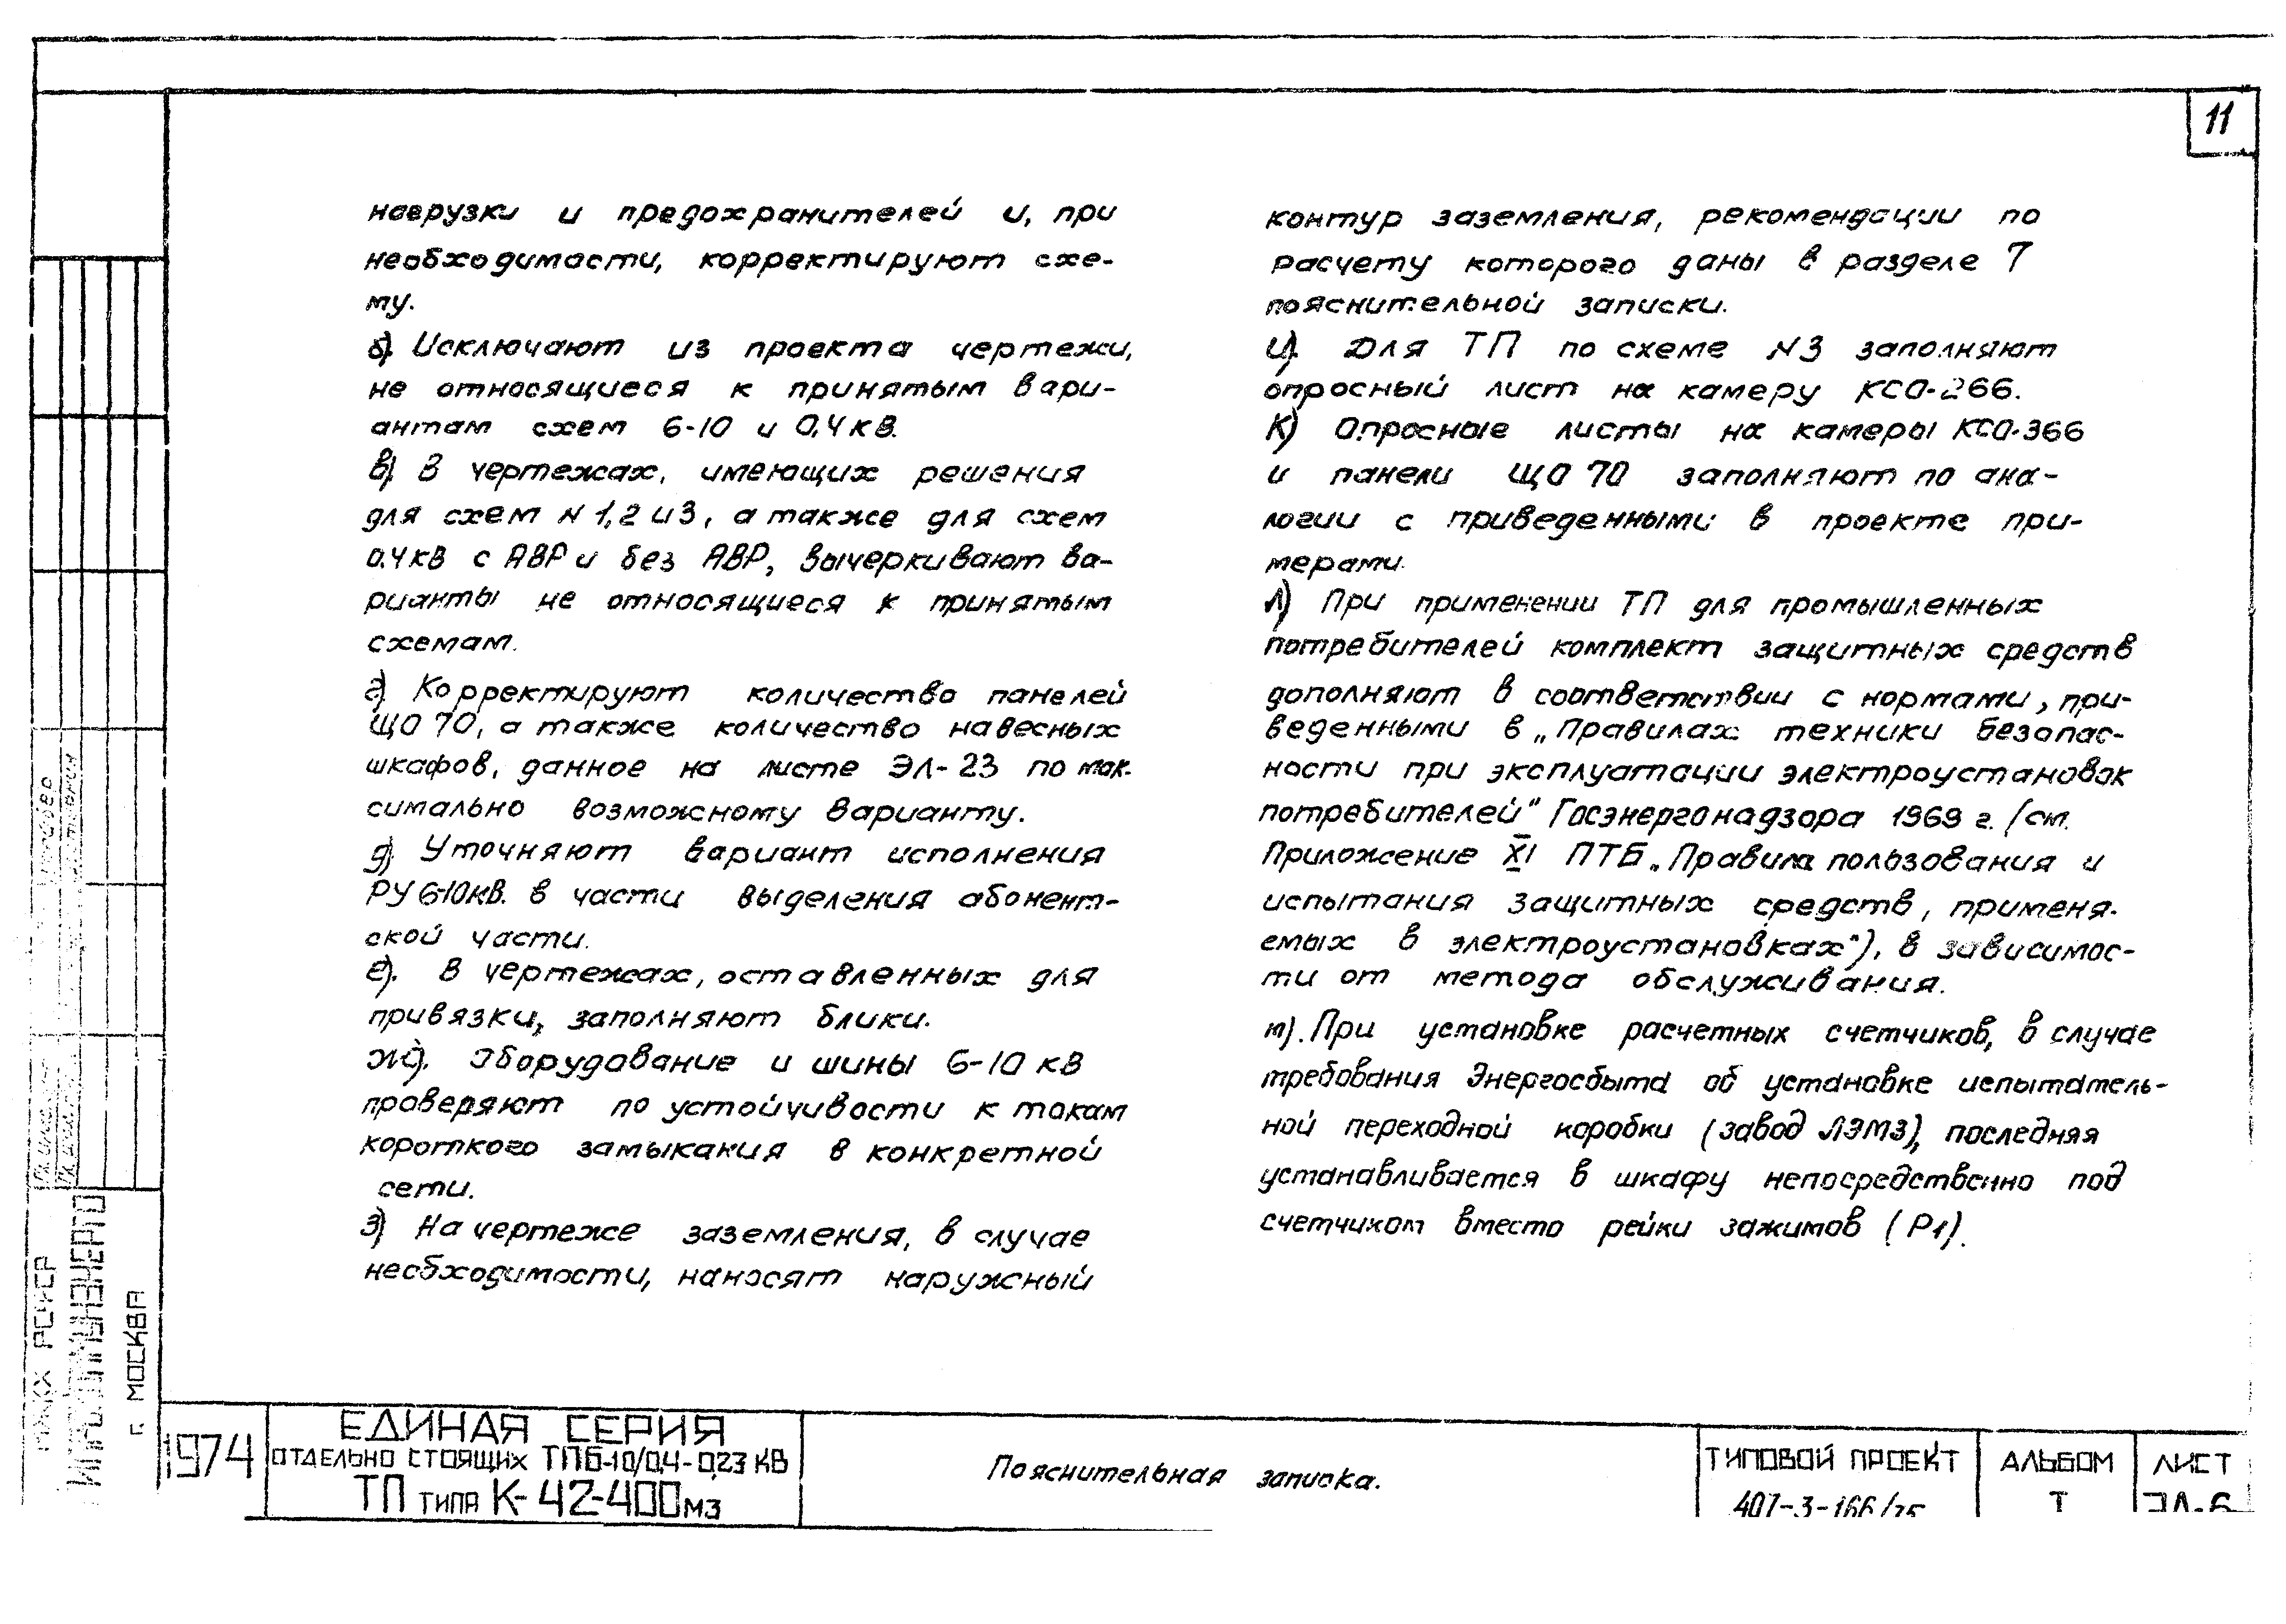 11
нагрузки и предохранителей и, при
необходимости, корректируют схе-
му.
б). Исключают из проекта чертежи,
не относящиеся к принятым вари-
антам схем 6-10 и 0,4 кВ.
в). В чертежах, имеющих решения
для схем N 1,2 и 3, а также для схем
0.4 кВ с АВР и без АВР, вычеркивают ва-
рианты не относящиеся к принятым
схемам.
г). Корректируют количество панелей
ЩО 70, а также количество навесных
шкафов, данное на листе ЭЛ-23 по мак-
симально возможному варианту.
д). Уточняют вариант исполнения
РУ 6-10кВ. в части выделения абонент-
ской части.
е). В чертежах, оставленных для
привязки, заполняют блики.
ж). Оборудование и шины 6-10 кВ
проверяют по устойчивости к токам
короткого замыкания в конкретной
сети.
з) На чертеже заземления, в случае
необходимости, наносят наружный
контур заземления, рекомендации по
расчету которого даны в разделе 7
пояснительной записки.
и). Для ТП по схеме N3 заполняют
опросный лист на камеру КСО-266.
К) Опросные листы на камеры КСО-366
и панели ЩО 70 заполняют по ана-
логии с приведенными в проекте при-
мерами.
л) При применении ТП для промышленных
потребителей комплект защитных средств
дополняют в соответствии с нормами, при-
веденными в „Правилах техники безопас-
ности при эксплуатации электроустановок
потребителей" Госэнергонадзора 1969 г. /см.
Приложение XI ПТБ „Правила пользования и
испытания защитных средств, применя-
емых в электроустановках"), в зависимос-
ти от метода обслуживания.
м). При установке расчетных счетчиков, в случае
требования Энергосбыта об установке испытатель-
ной переходной коробки (завод ЛЭМЗ), последняя
устанавливается в шкафу непосредственно под
счетчиком вместо рейки зажимов (Р1).
МЖКХ РСФСР
ГИПРОКОММУНЭНЕРГО
г. МОСКВА
1974
ЕДИНАЯ СЕРИЯ
ОТДЕЛЬНО СТОЯЩИХ ТП 6-10/0,4-0,23 КВ
ТП ТИПА К-42-400 М3
Пояснительная записка.
ТИПОВОЙ ПРОЕКТ
407-3-166/75
АЛЬБОМ
I
ЛИСТ
ЭЛ-6